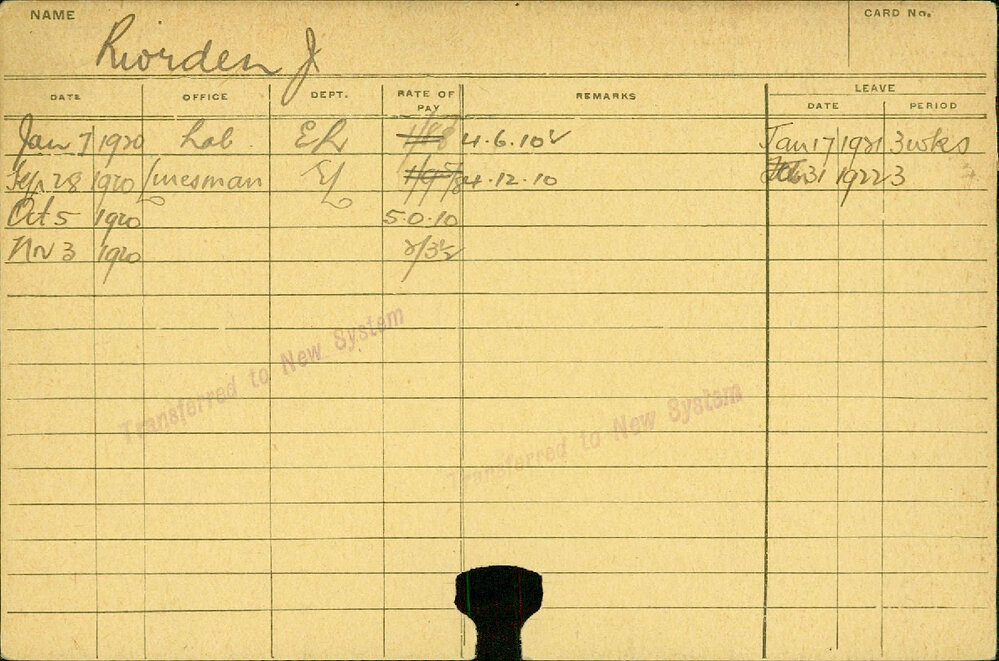 NAME
CARD No.
Riorden J
DATE OFFICE DEPT. RATE OF PAY REMARKS LEAVE
DATE PERIOD
Jan 7 1920 Lab EL 4.6.10 Jan 17 1921 3wks
Sep 28 1920 Linesman EL 4.12.10 31 1922 3
Oct 5 1920 5.0.10
Nov 3 1920 2/3½
Transferred to New System
Transferred to New System